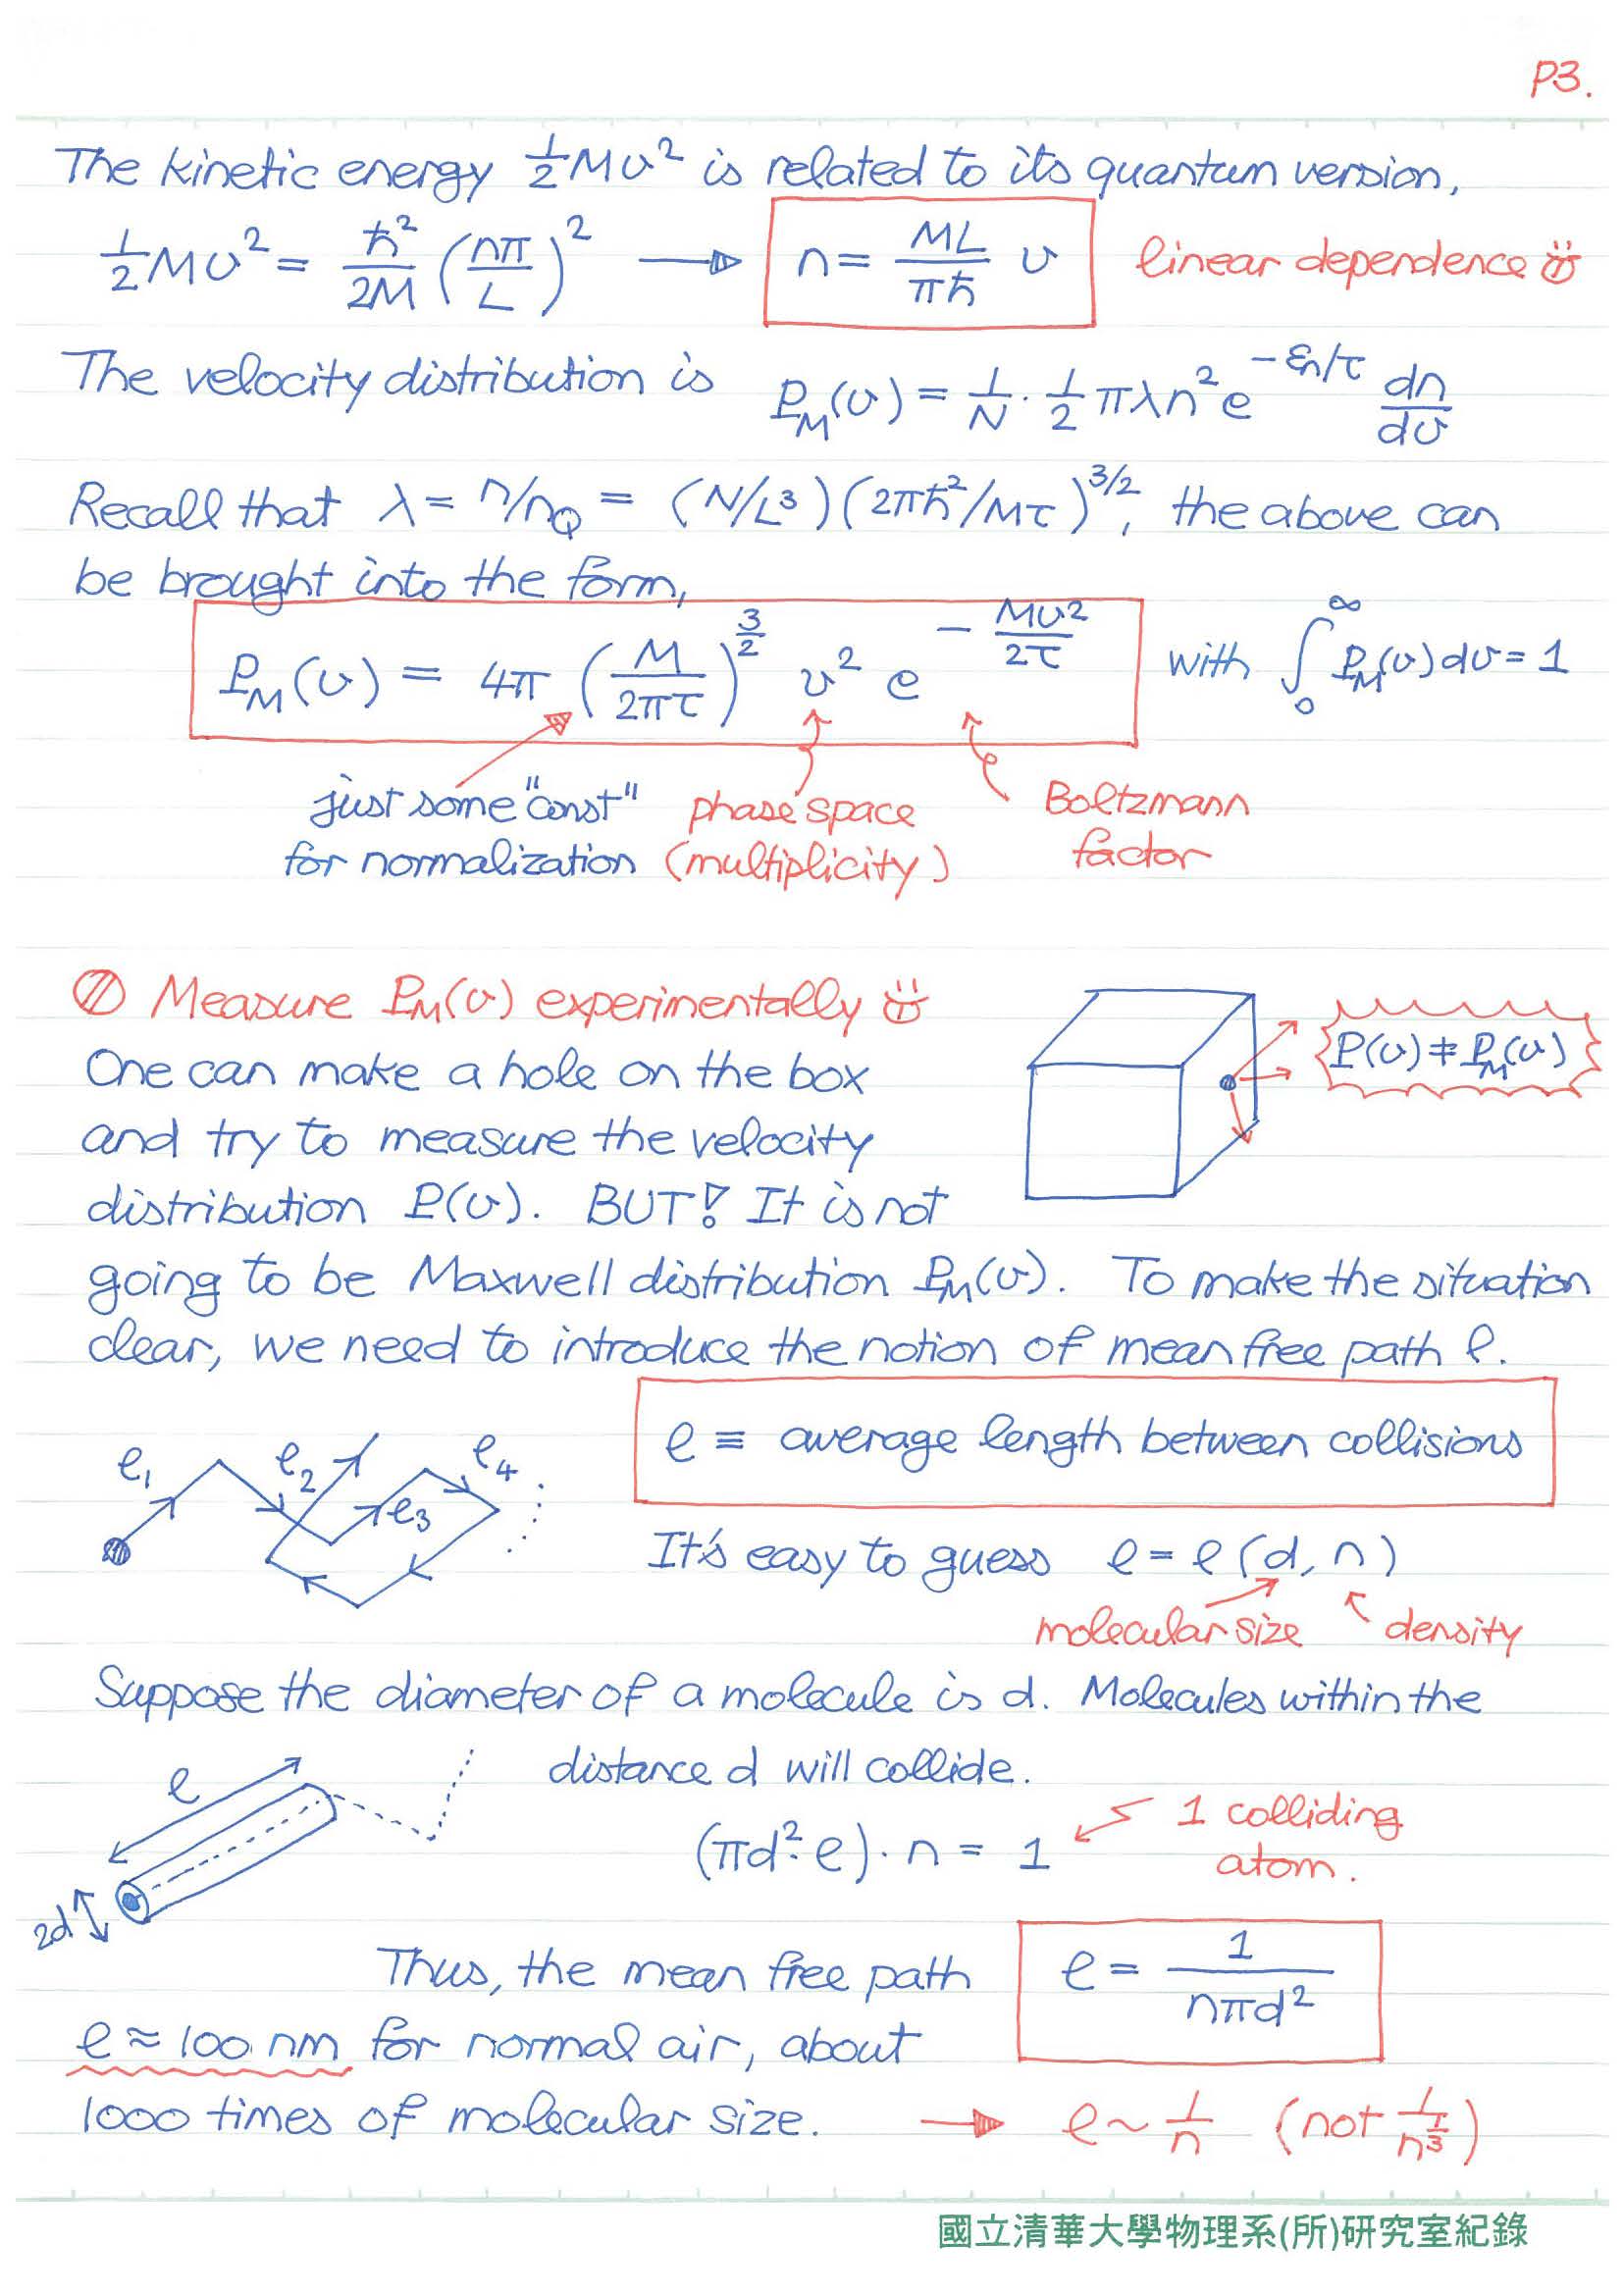 P3.
The kinetic energy ½Mv² is related to its quantum version,
½Mv² = ħ²/2M (nπ/L)² → n = ML/πħ v linear dependence
The velocity distribution is P_M(v) = 1/N · 1/2 πλn² e^(-εn/τ) dn/dv
Recall that λ = n/n_Q = (N/L³)(2πħ²/Mτ)^(3/2), the above can
be brought into the form,
P_M(v) = 4π (M/2πτ)^(3/2) v² e^(-Mv²/2τ) with ∫₀^∞ P_M(v)dv = 1
just some "const" phase space Boltzmann
for normalization (multiplicity) factor
Measure P_M(v) experimentally
P(v) ≠ P_M(v)
One can make a hole on the box
and try to measure the velocity
distribution P(v). BUT! It is not
going to be Maxwell distribution P_M(v). To make the situation
clear, we need to introduce the notion of mean free path ℓ.
ℓ ≡ average length between collisions
ℓ₁ ℓ₂ ℓ₃ ℓ₄
It's easy to guess ℓ = ℓ(d, n)
molecular size density
Suppose the diameter of a molecule is d. Molecules within the
distance d will collide.
ℓ
2d
(πd²·ℓ)·n = 1 1 colliding
atom.
Thus, the mean free path ℓ = 1/nπd²
ℓ ≈ 100 nm for normal air, about
1000 times of molecular size. → ℓ ~ 1/n (not 1/n^(1/3))
國立清華大學物理系(所)研究室紀錄